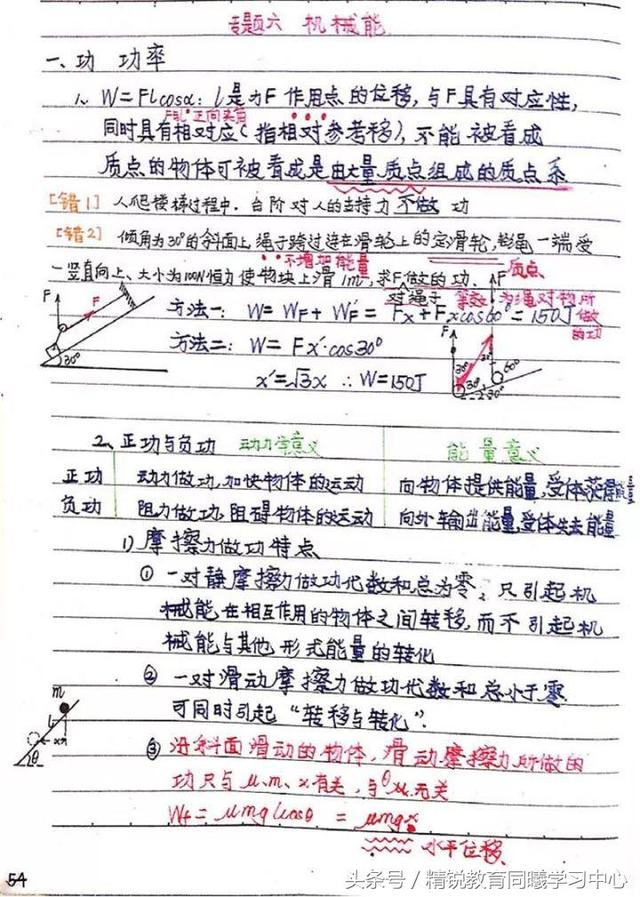 专题六 机械能
一、功 功率
1、W=Flcosα：l是力F作用点的位移，与F具有对应性，
F与l正向夹角
同时具有相对应（指相对参考移），不能被看成
质点的物体可被看成是由大量质点组成的质点系
[错1] 人爬楼梯过程中，台阶对人的支持力不做功
[错2] 倾角为30°的斜面上，绳子跨过连在滑轮上的定滑轮，绳一端受
不增加能量 质点
一竖直向上、大小为100N恒力使物块上滑1m，求F做的功．
对绳子 为绳对物所做的功
F F 30°
方法一：W=WF+WF'=Fx+Fxcos60°=150J
方法二：W=Fx'·cos30°
x'=√3x ∴W=150J
F 30° 60° 30°
2、正功与负功 动力学意义 能量意义
正功 动力做功，加快物体的运动 向物体提供能量，受体获得能量
负功 阻力做功，阻碍物体的运动 向外输出能量，受体失去能量
1) 摩擦力做功特点
① 一对静摩擦力做功代数和总为零，只引起机
械能在相互作用的物体之间转移，而不引起机
械能与其他形式能量的转化
② 一对滑动摩擦力做功代数和总小于零
可同时引起“转移与转化”．
m l x θ
③ 沿斜面滑动的物体，滑动摩擦力所做的
功只与μ、m、x有关，与θ无关
Wf=μmglcosθ=μmgx
水平位移
54
头条号／精锐教育同曦学习中心